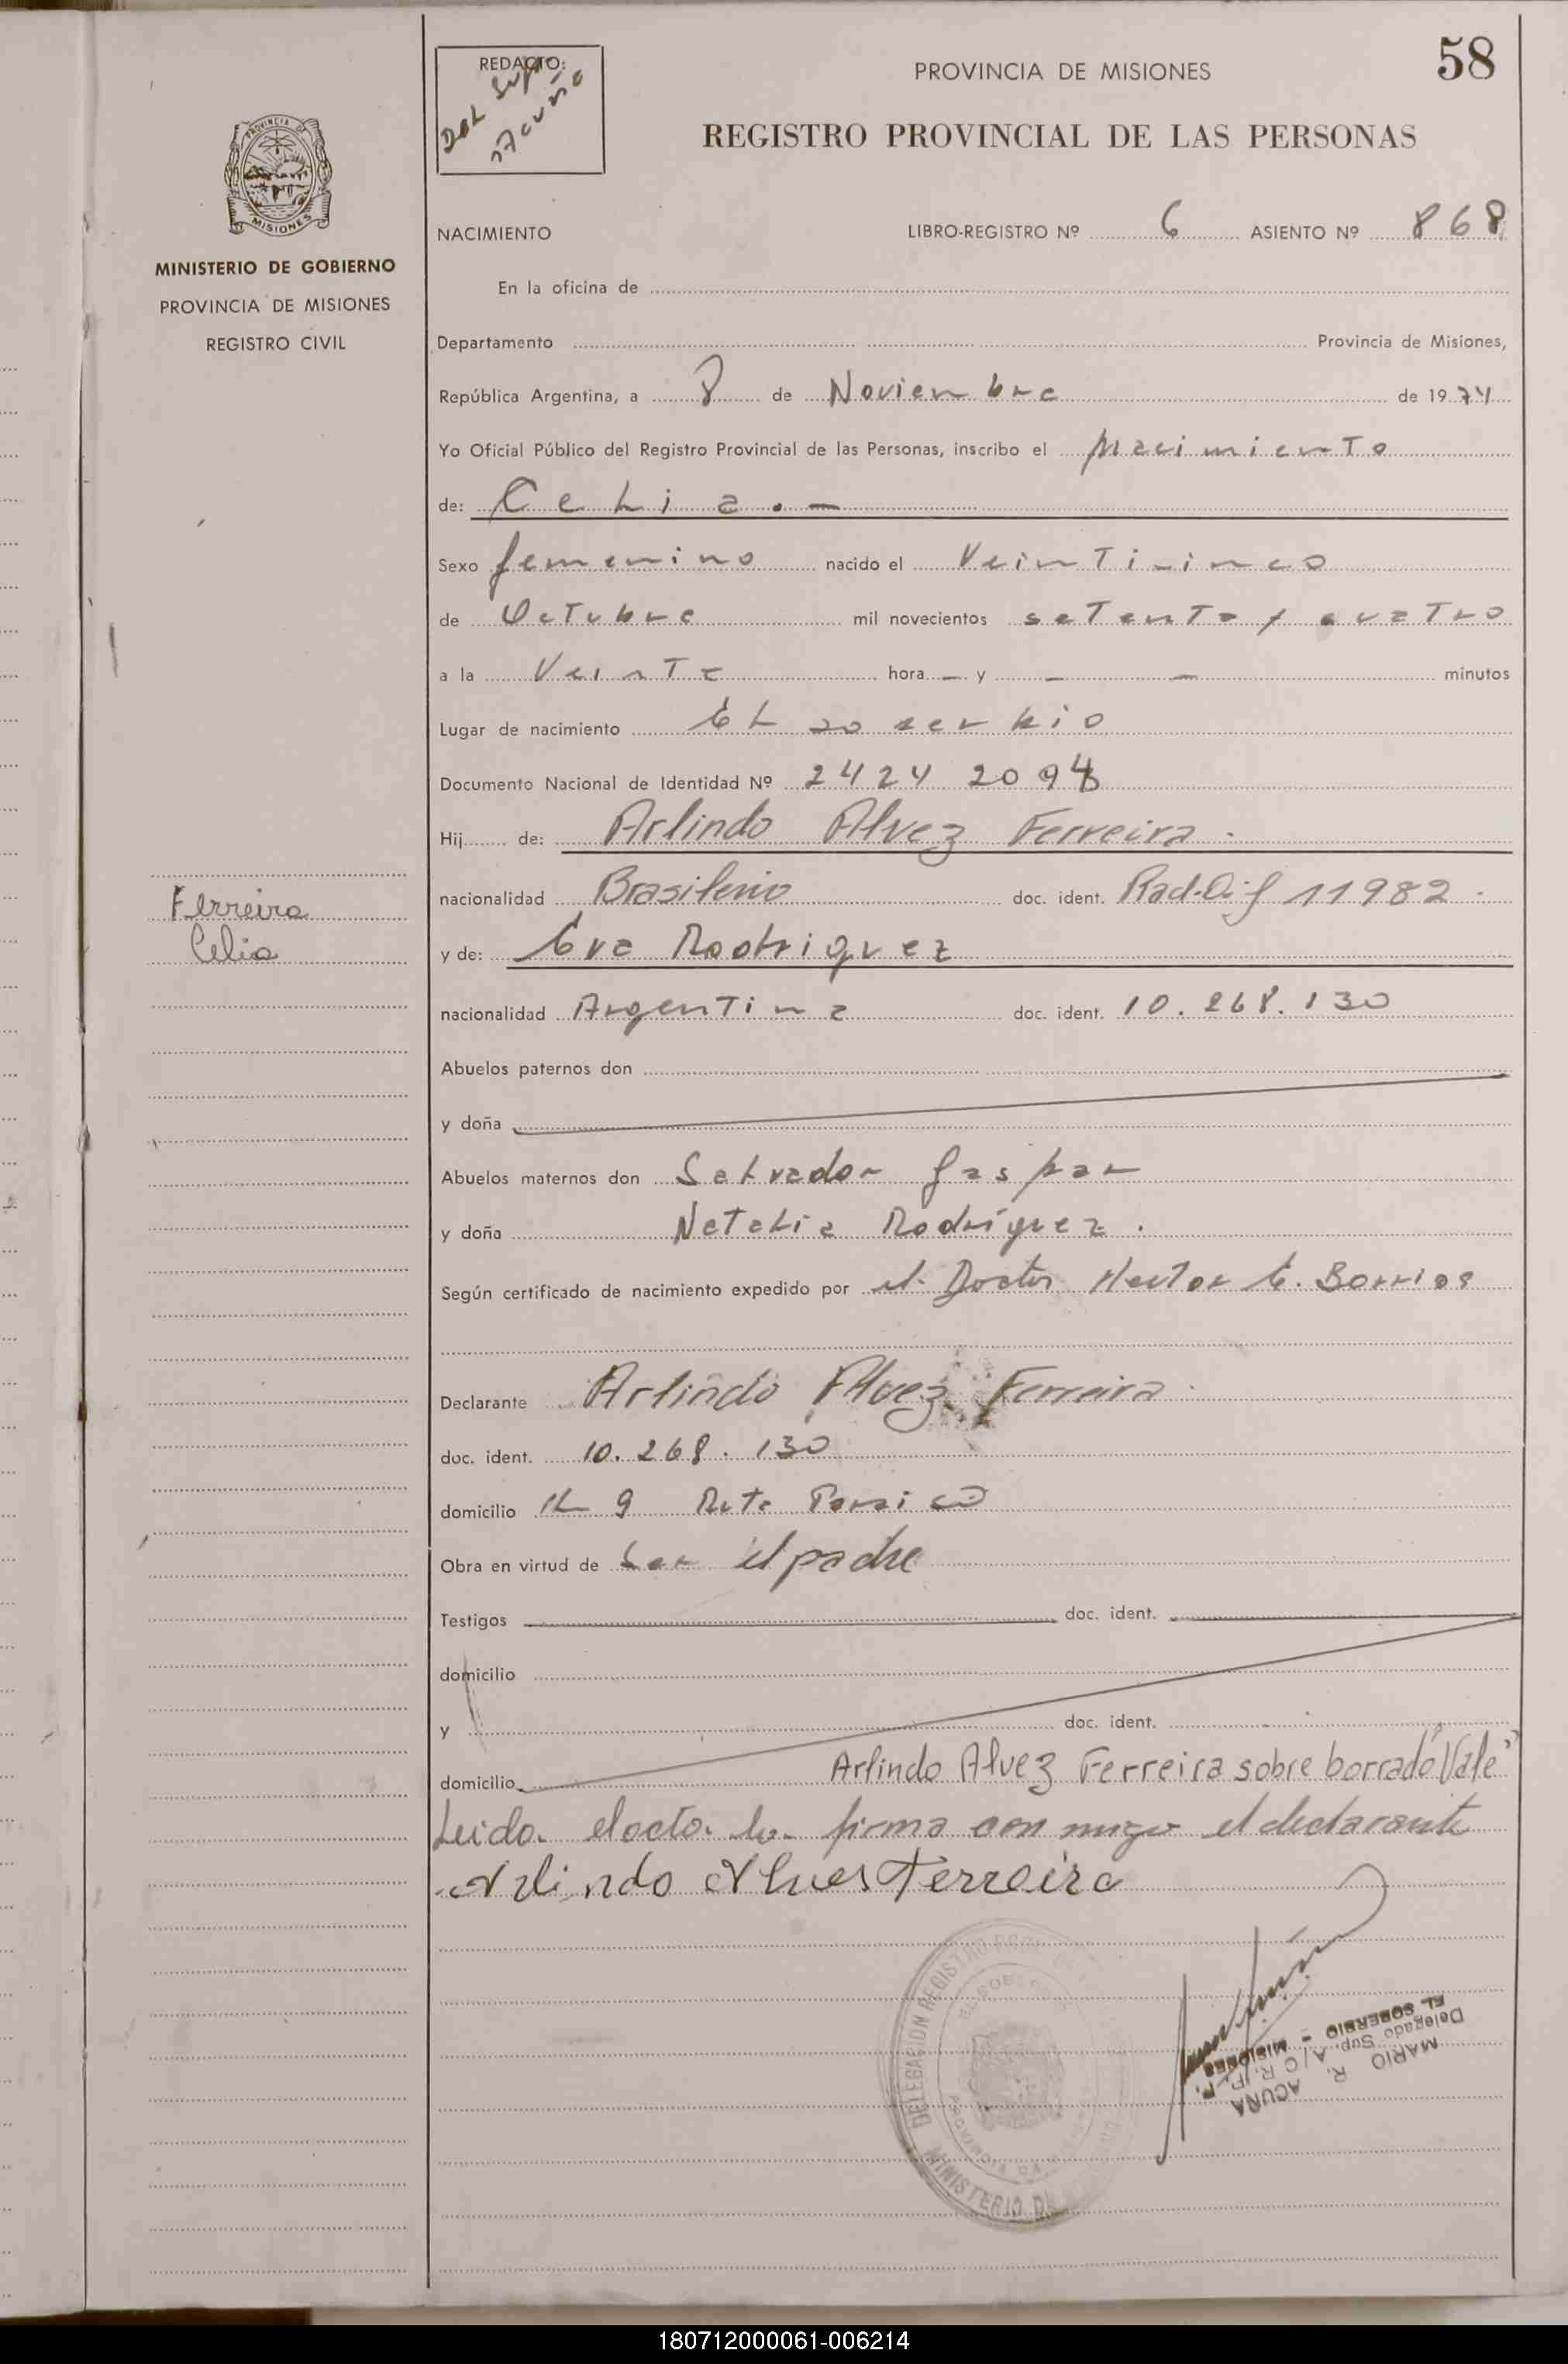 58
REDACTO:
DEL SUP
ACUÑA
PROVINCIA DE MISIONES
REGISTRO PROVINCIAL DE LAS PERSONAS
PROVINCIA DE
MISIONES
MINISTERIO DE GOBIERNO
PROVINCIA DE MISIONES
REGISTRO CIVIL
NACIMIENTO LIBRO-REGISTRO Nº 6 ASIENTO Nº 868
En la oficina de
Departamento Provincia de Misiones,
República Argentina, a 8 de Novienbre de 1974
Yo Oficial Público del Registro Provincial de las Personas, inscribo el Nacimiento
de: Celia.-
Sexo femenino nacido el
de Octubre mil novecientos setenta y cuatro
a la Veinte hora - y - - minutos
Lugar de nacimiento El
Documento Nacional de Identidad Nº 2424
Hij de: Arlindo Alvez Ferreira.
nacionalidad Brasilerio doc. ident. Rad-Dif 11982.
Ferreira
Celia
y de: Eva Rodriguez
nacionalidad Argentina doc. ident. 10.268.130
Abuelos paternos don
y doña
Abuelos maternos don Salvador Gaspar
y doña Natalia Rodríguez.
Según certificado de nacimiento expedido por el Doctor Hector E. Borrios
Declarante Arlindo Alvez Ferreira.
doc. ident. 10.268.130
domicilio 9
Obra en virtud de Ser el padre
Testigos doc. ident.
domicilio
y doc. ident.
domicilio Arlindo Alvez Ferreira sobre borrado "Vale"
Leido el acto lo firma con migo el declarante
Arlindo Alves Ferreira
DELEGACION REGISTRO
EL SOBERBIO
PROVINCIA DE
MINISTERIO DE
MARIO R. ACUÑA
Delegado Sup. A/C R.P.P.
EL SOBERBIO - MISIONES
180712000061-006214